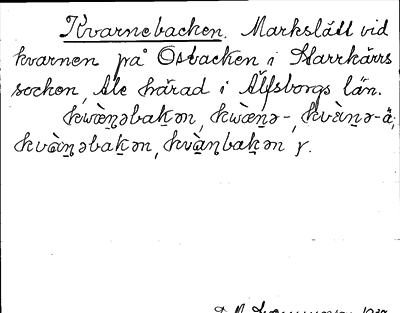 Kvarnebacken. Markslått vid
kvarnen på Osbacken i Starrkärrs
socken, Ale härad i Älfsborgs län.
kwæ̀n̠əbak̠ən, kwæ̀n̠ə-, kvàin̠ə-ä;
kvàin̠əbak̠ən, kvàn̠bak̠ən γ.